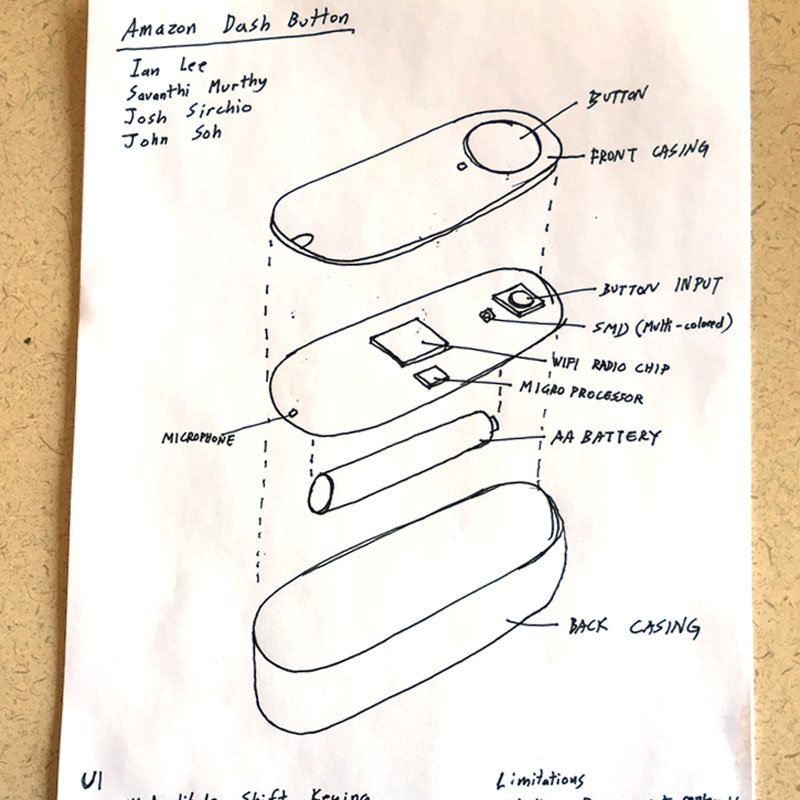 Amazon Dash Button
Ian Lee
Savanthi Murthy
Josh Sirchio
John Soh
BUTTON
FRONT CASING
BUTTON INPUT
SMD (Multi-colored)
WIFI RADIO CHIP
MICROPROCESSOR
MICROPHONE
AA BATTERY
BACK CASING
UI
Limitations
Shift Keying